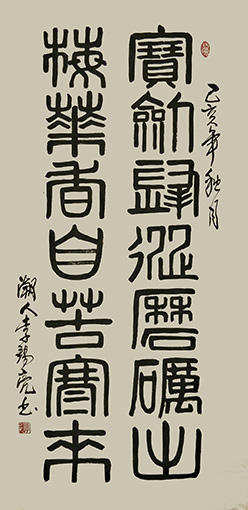 乙亥年秋月
寶劍鋒從磨礪出
梅華香自苦寒來
潮人李錫亮书